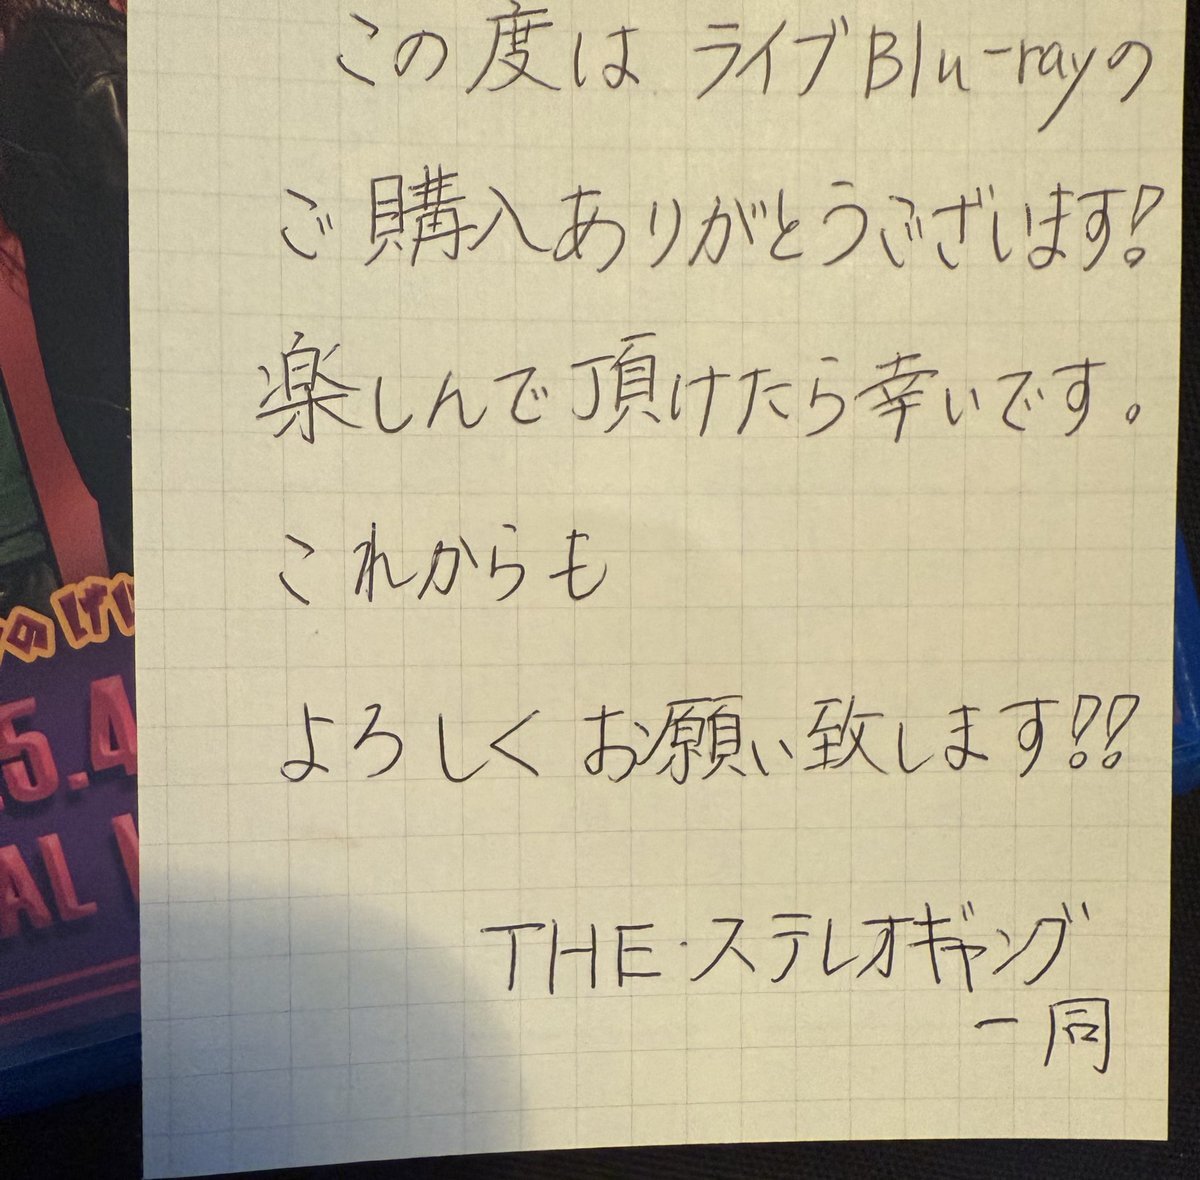 この度は ライブBlu-rayの
ご購入ありがとうございます!
楽しんで頂けたら幸いです。
これからも
よろしくお願い致します!!
THE・ステレオギャング
一同
のけい
5.4
AL